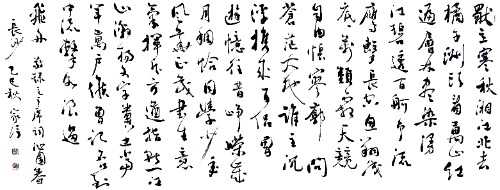 獨立寒秋湘江北去
橘子洲頭看萬山紅
遍層林盡染漫
江碧透百舸爭流
鷹擊長空魚翔淺
底萬類霜天競
自由悵寥廓問
蒼茫大地誰主沉
浮攜來百侶曾
遊憶往昔崢嶸歲
月稠恰同學少
年風華正茂書生意
氣揮斥方遒指點江
山激揚文字糞土當
年萬戶侯曾記否到
中流擊水浪遏
飛舟 敬錄毛主席詞沁園春
長沙 乙巳秋